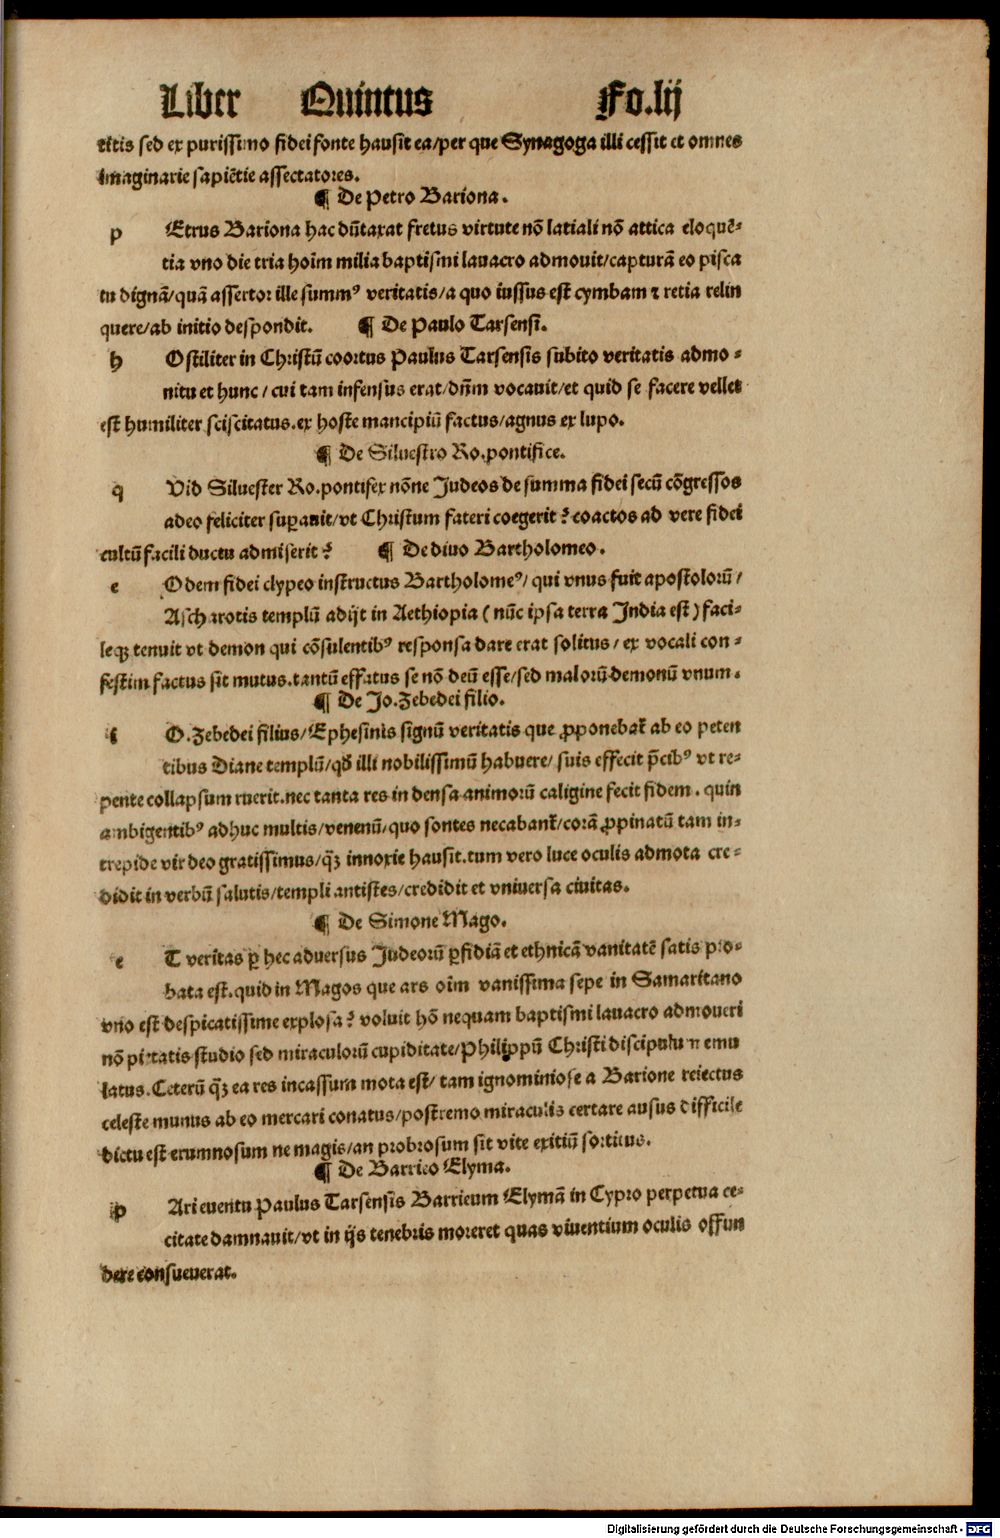 Liber Quintus Fo.lij
sed ex purissimo fidei fonte hausit ea/per que Synagoga illi cessit et omnes
imaginarie sapiētie assectatores.
¶ De Petro Bariona.
p Etrus Bariona hac dūtaxat fretus virtute nō latiali nō attica eloquē-
tia vno die tria hoīm milia baptismi lauacro admouit/capturā eo pisca
tu dignā/quā assertor ille summꝰ veritatis/a quo iussus est cymbam ⁊ retia relin
quere/ab initio despondit. ¶ De Paulo Tarsensi.
h Ostiliter in Christū coortus Paulus Tarsensis subito veritatis admo-
nitu et hunc/cui tam infensus erat/dn̄m vocauit/et quid se facere vellet
est humiliter sciscitatus.ex hoste mancipiū factus/agnus ex lupo.
¶ De Siluestro Ro.pontifice.
q Vid Siluester Ro.pontifex nōne Judeos de summa fidei secū cōgressos
adeo feliciter suꝑauit/vt Christum fateri coegerit? coactos ad vere fidei
cultū facili ductu admiserit? ¶ De diuo Bartholomeo.
e Odem fidei clypeo instructus Bartholomeꝰ/qui vnus fuit apostolorū/
Ascharotis templū adijt in Aethiopia (nūc ipsa terra India est) faci-
leqꝫ tenuit vt demon qui cōsulentibꝰ responsa dare erat solitus/ex vocali con-
festim factus sit mutus.tantū effatus se nō deū esse/sed malorū demonū vnum.
¶ De Jo.Zebedei filio.
i O.Zebedei filius/Ephesinis signū veritatis que ꝓponebat̄ ab eo peten
tibus Diane templū/qđ illi nobilissimū habuere/suis effecit p̄cibꝰ vt re-
pente collapsum ruerit.nec tanta res in densa animorū caligine fecit fidem.quin
ambigentibꝰ adhuc multis/venenū/quo sontes necabant̄/corā ꝓpinatū tam in-
trepide vir deo gratissimus/qꝫ̄ innoxie hausit.tum vero luce oculis admota cre-
didit in verbū salutis/templi antistes/credidit et vniuersa ciuitas.
¶ De Simone Mago.
e T veritas ꝑ hec aduersus Judeorū ꝑfidiā et ethnicā vanitatē satis pro-
bata est.quid in Magos que ars oīm vanissima sepe in Samaritano
vno est despicatissime explosa? voluit hō nequam baptismi lauacro admoueri
nō pietatis studio sed miraculorū cupiditate/Philippū Christi discipulū emu
latus.Ceterū qꝫ̄ ea res incassum mota est/tam ignominiose a Barione reiectus
celeste munus ab eo mercari conatus/postremo miraculis certare ausus difficile
dictu est erumnosum ne magis/an probrosum sit vite exitiū sortitus.
¶ De Barrieo Elyma.
p Ari euentu Paulus Tarsensis Barrieum Elymā in Cypro perpetua ce-
citate damnauit/vt in ijs tenebris moreret quas viuentium oculis offun
dere consueuerat.
Digitalisierung gefördert durch die Deutsche Forschungsgemeinschaft - DFG